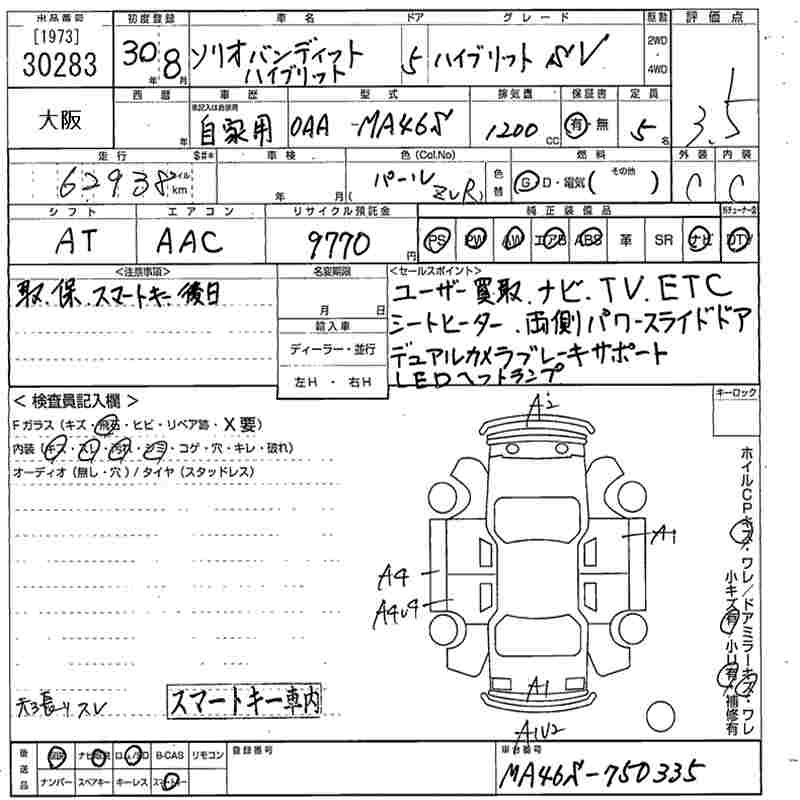 出品番号 初度登録 車名 ドア グレード 駆動 評価点
[1973]
30283 30年 8月 ソリオバンディット ハイブリット 5 ハイブリット SV 2WD・4WD 3.5
大阪 西暦 年 車歴 未記入は自家用 自家用 型式 DAA-MA46S 排気量 1200 CC 保証書 有・無 定員 5名
走行 $#* 車検 色(Col,No) 色替 燃料 外装 内装
62938 マイル km 年 月 パール ( ZVR) G・D・電気( その他 ) C C
シフト エアコン リサイクル預託金 純正装備品
AT AAC 9770円 PS PW AW エアB ABS 革 SR ナビ DTV
<注意事項> 名変期限 <セールスポイント>
取、保、スマートキー後日
月 日
輸入車
ディーラー・並行
左H ・ 右H
ユーザー買取、ナビ、TV、ETC
シートヒーター、両側パワースライドドア
デュアルカメラブレーキサポート
LEDヘットランプ
キーロック
< 検査員記入欄 >
Fガラス (キズ・飛石・ヒビ・リペア跡・X要)
内装 (キズ・スレ・汚れ・シミ・コゲ・穴・キレ・破れ)
オーディオ (無し・穴) / タイヤ (スタッドレス)
A2
A1
A4
A4U9
A1
A1U2
ホイルCPキズ・ワレ/ドアミラーキズ・ワレ
小キズ有・小U有・補修有
天張りスレ
スマートキー車内
後送品 ナビ ロム/SD B-CAS リモコン 登録番号 車台番号
ナンバー スペアキー キーレス スマートキー
MA46S-750335